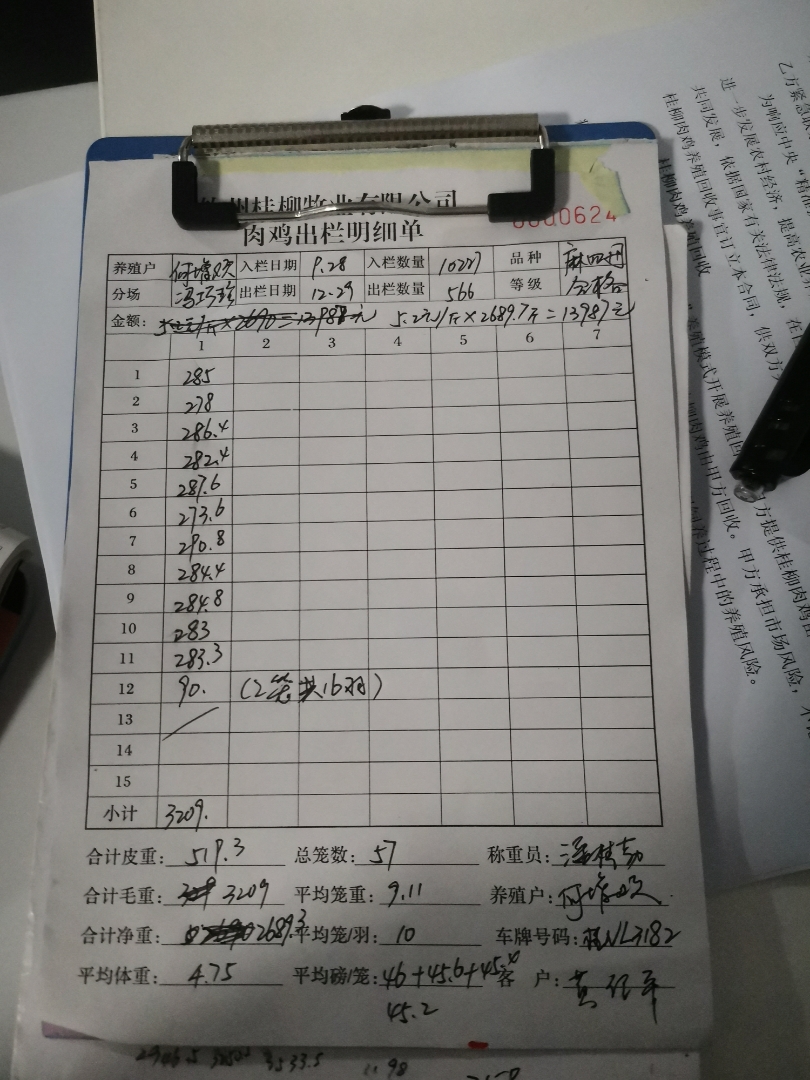 州桂柳牧业有限公司
肉鸡出栏明细单
0000624
养殖户 入栏日期 9.28 入栏数量 10227 品种 麻四川
分场 冯巧珍 出栏日期 12.29 出栏数量 566 等级 合格
金额： 5.2元/斤×2689.7斤=13987元
1 2 3 4 5 6 7
1 285
2 278
3 286.4
4 282.4
5 287.6
6 273.6
7 290.8
8 284.4
9 284.8
10 283
11 283.3
12 90. (2笼共16羽)
13
14
15
小计 3209.
合计皮重： 519.3 总笼数： 57 称重员：
合计毛重： 3209 平均笼重： 9.11 养殖户：
合计净重： 2689.3 平均笼/羽： 10 车牌号码： NL3182
平均体重： 4.75 平均磅/笼： 46+45.6+45.4 客户：
45.2
乙方紧急
为响应中央“精准
进一步发展农村经济，提高农业
共同发展，依据国家有关法律法规，在
桂柳肉鸡养殖回收事宜订立本合同，供双方
桂柳肉鸡养殖回收
”养殖模式开展养殖
方提供桂柳肉鸡苗
柳肉鸡由甲方回收。甲方承担市场风险，
养过程中的养殖风险。
3533.5
98